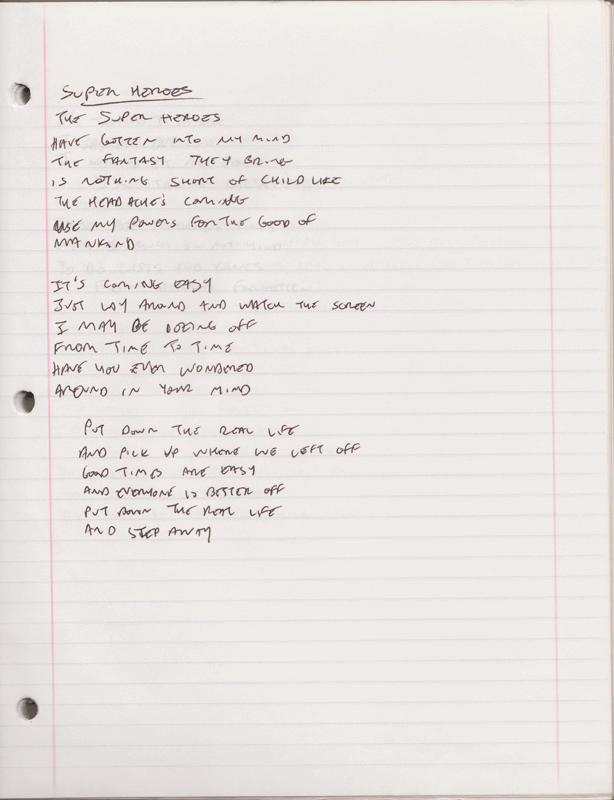 SUPER HEROES
THE SUPER HEROES
HAVE GOTTEN INTO MY MIND
THE FANTASY THEY BRING
IS NOTHING SHORT OF CHILD LIKE
THE HEADACHE'S COMING
USE MY POWERS FOR THE GOOD OF
MANKIND
IT'S COMING EASY
JUST LAY AROUND AND WATCH THE SCREEN
I MAY BE DOZING OFF
FROM TIME TO TIME
HAVE YOU EVER WONDERED
AROUND IN YOUR MIND
PUT DOWN THE REAL LIFE
AND PICK UP WHERE WE LEFT OFF
GOOD TIMES ARE EASY
AND EVERYONE IS BETTER OFF
PUT DOWN THE REAL LIFE
AND STEP AWAY